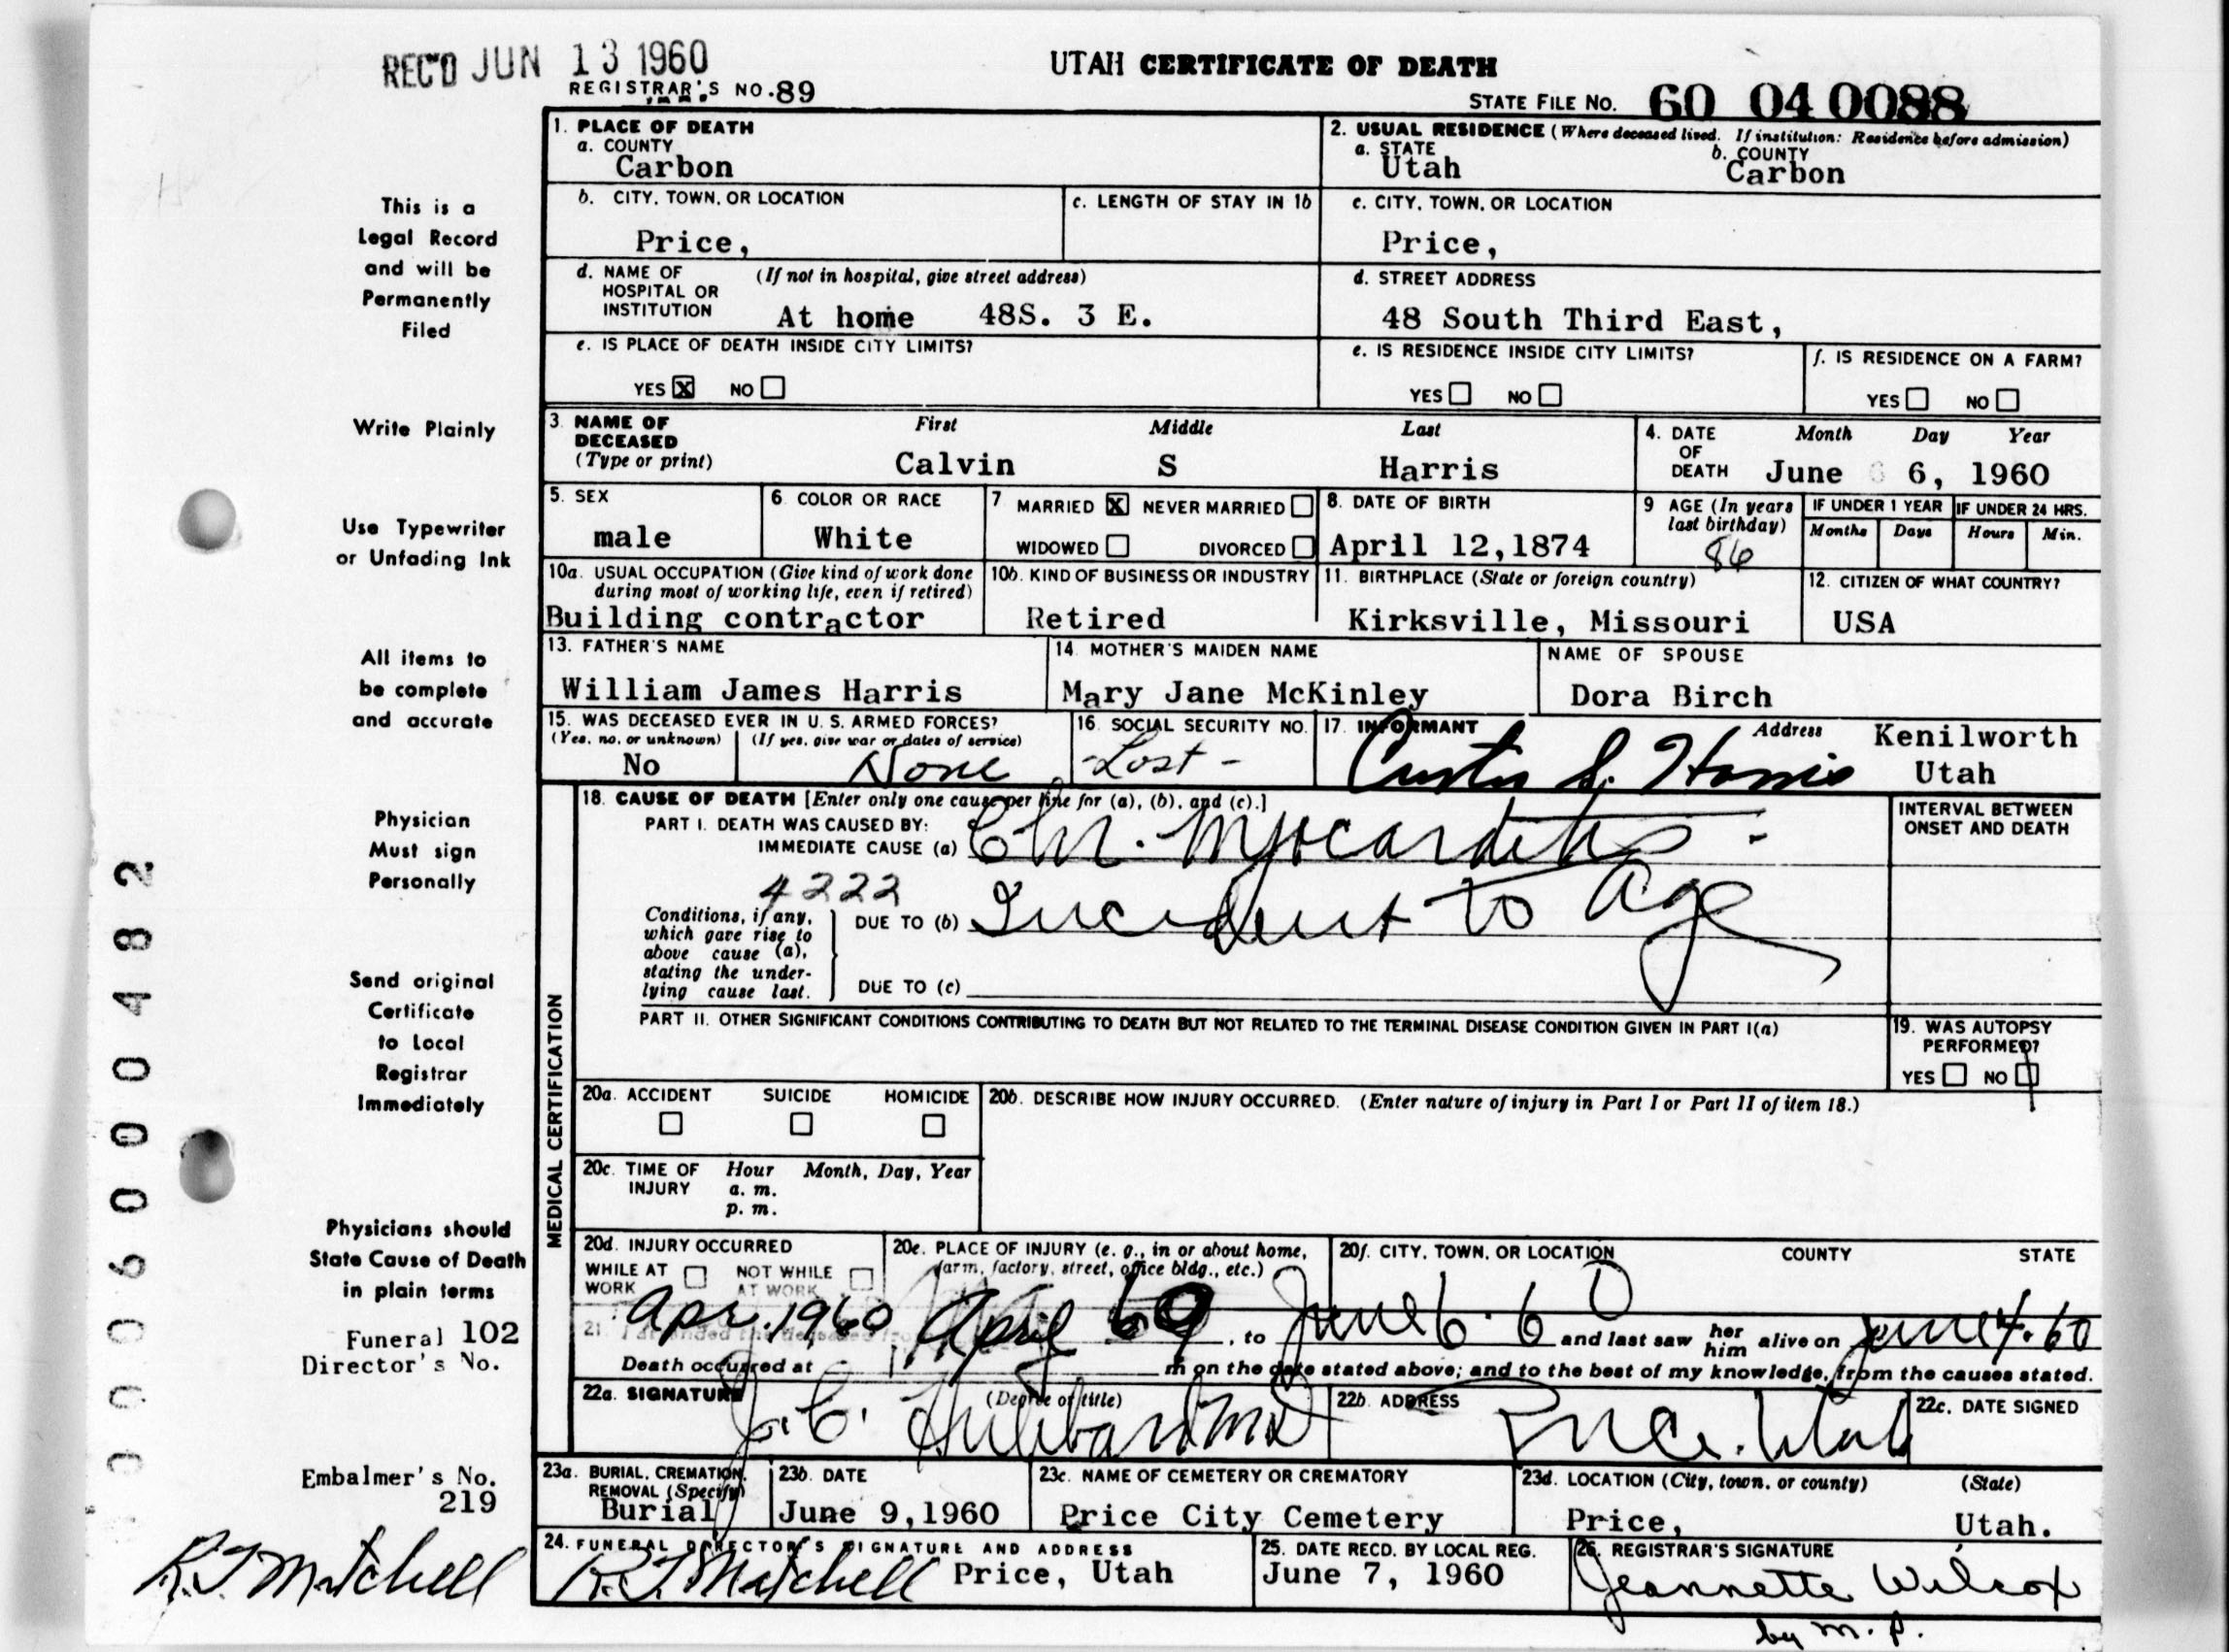 REC'D JUN 13 1960
REGISTRAR'S NO. 89
UTAH CERTIFICATE OF DEATH
STATE FILE NO. 60 04 0088
This is a
Legal Record
and will be
Permanently
Filed
Write Plainly
Use Typewriter
or Unfading Ink
All items to
be complete
and accurate
Physician
Must sign
Personally
Send original
Certificate
to Local
Registrar
Immediately
Physicians should
State Cause of Death
in plain terms
Funeral 102
Director's No.
Embalmer's No.
219
R.T. Mitchell
1. PLACE OF DEATH
a. COUNTY
Carbon
2. USUAL RESIDENCE (Where deceased lived. If institution: Residence before admission)
a. STATE b. COUNTY
Utah Carbon
b. CITY, TOWN, OR LOCATION
Price,
c. LENGTH OF STAY IN 1b
c. CITY, TOWN, OR LOCATION
Price,
d. NAME OF (If not in hospital, give street address)
HOSPITAL OR
INSTITUTION At home 48S. 3 E.
d. STREET ADDRESS
48 South Third East,
e. IS PLACE OF DEATH INSIDE CITY LIMITS?
YES X NO
e. IS RESIDENCE INSIDE CITY LIMITS?
YES NO
f. IS RESIDENCE ON A FARM?
YES NO
3. NAME OF First Middle Last
DECEASED
(Type or print) Calvin S Harris
4. DATE Month Day Year
OF
DEATH June 6, 1960
5. SEX
male
6. COLOR OR RACE
White
7 MARRIED X NEVER MARRIED
WIDOWED DIVORCED
8. DATE OF BIRTH
April 12,1874
9 AGE (In years
last birthday)
86
IF UNDER 1 YEAR
Months Days
IF UNDER 24 HRS.
Hours Min.
10a. USUAL OCCUPATION (Give kind of work done
during most of working life, even if retired)
Building contractor
10b. KIND OF BUSINESS OR INDUSTRY
Retired
11. BIRTHPLACE (State or foreign country)
Kirksville, Missouri
12. CITIZEN OF WHAT COUNTRY?
USA
13. FATHER'S NAME
William James Harris
14. MOTHER'S MAIDEN NAME
Mary Jane McKinley
NAME OF SPOUSE
Dora Birch
15. WAS DECEASED EVER IN U. S. ARMED FORCES?
(Yes, no, or unknown) (If yes, give war or dates of service)
No None
16. SOCIAL SECURITY NO.
-Lost-
17. INFORMANT Address
Curtis S. Harris Kenilworth
Utah
MEDICAL CERTIFICATION
18. CAUSE OF DEATH [Enter only one cause per line for (a), (b), and (c).]
PART I. DEATH WAS CAUSED BY:
IMMEDIATE CAUSE (a) Chr. Myocarditis -
4222
Conditions, if any,
which gave rise to
above cause (a),
stating the under-
lying cause last.
DUE TO (b) Incident to age
DUE TO (c)
INTERVAL BETWEEN
ONSET AND DEATH
PART II. OTHER SIGNIFICANT CONDITIONS CONTRIBUTING TO DEATH BUT NOT RELATED TO THE TERMINAL DISEASE CONDITION GIVEN IN PART I(a)
19. WAS AUTOPSY
PERFORMED?
YES NO
20a. ACCIDENT SUICIDE HOMICIDE
20b. DESCRIBE HOW INJURY OCCURRED. (Enter nature of injury in Part I or Part II of item 18.)
20c. TIME OF Hour Month, Day, Year
INJURY a. m.
p. m.
20d. INJURY OCCURRED
WHILE AT NOT WHILE
WORK AT WORK
20e. PLACE OF INJURY (e. g., in or about home,
farm, factory, street, office bldg., etc.)
20f. CITY, TOWN, OR LOCATION COUNTY STATE
Apr. 1960
21. I attended the deceased from April 60, to June 6. 60 and last saw her him alive on June 4. 60
Death occurred at m on the date stated above; and to the best of my knowledge, from the causes stated.
22a. SIGNATURE (Degree or title)
J. C. Hubbard MD
22b. ADDRESS
Price. Utah
22c. DATE SIGNED
23a. BURIAL, CREMATION,
REMOVAL (Specify)
Burial
23b. DATE
June 9,1960
23c. NAME OF CEMETERY OR CREMATORY
Price City Cemetery
23d. LOCATION (City, town, or county) (State)
Price, Utah.
24. FUNERAL DIRECTOR'S SIGNATURE AND ADDRESS
R.T. Mitchell Price, Utah
25. DATE RECD. BY LOCAL REG.
June 7, 1960
26. REGISTRAR'S SIGNATURE
Jeannette Wilcox
by M. P.